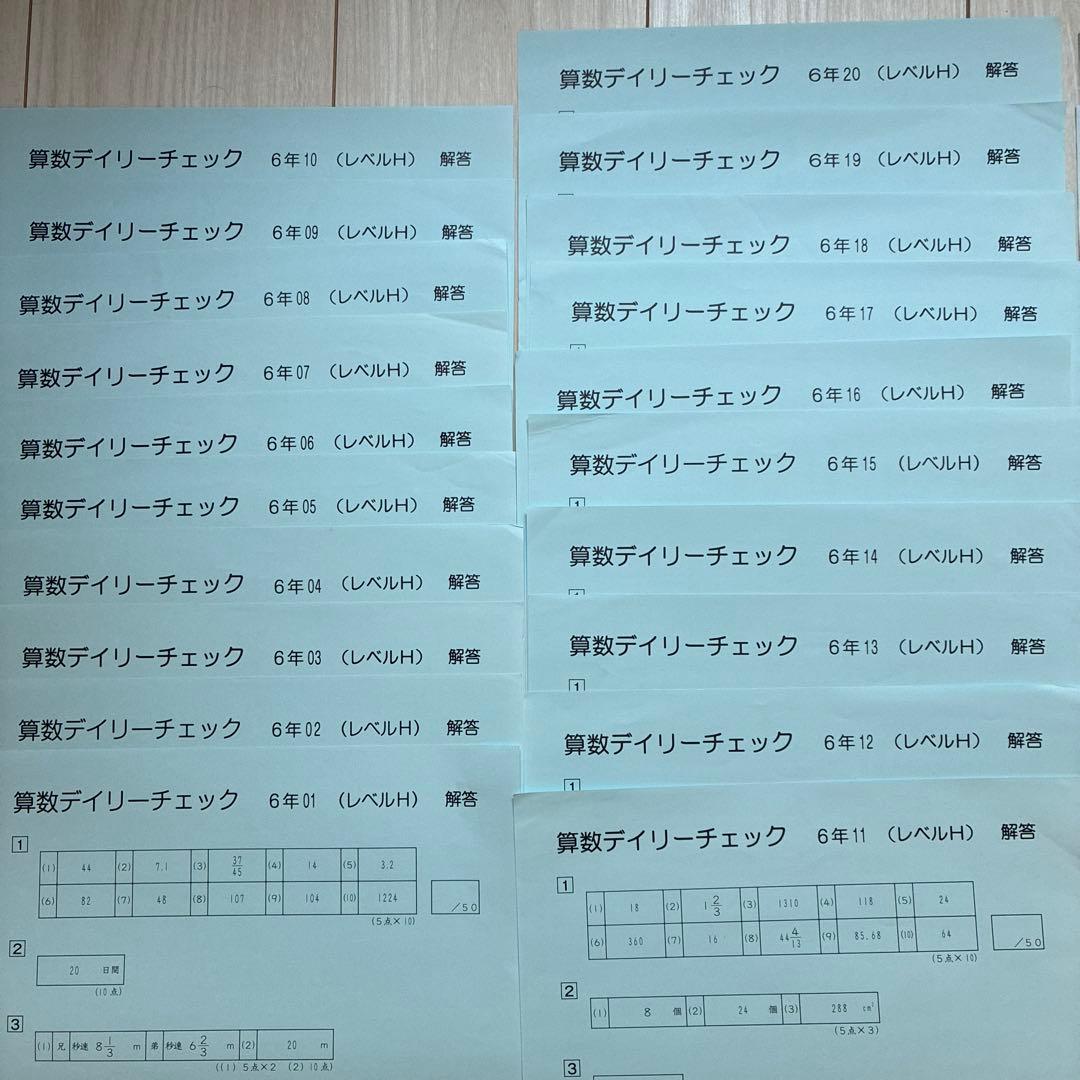 算数デイリーチェック 6年10 (レベルH) 解答
算数デイリーチェック 6年09 (レベルH) 解答
算数デイリーチェック 6年08 (レベルH) 解答
算数デイリーチェック 6年07 (レベルH) 解答
算数デイリーチェック 6年06 (レベルH) 解答
算数デイリーチェック 6年05 (レベルH) 解答
算数デイリーチェック 6年04 (レベルH) 解答
算数デイリーチェック 6年03 (レベルH) 解答
算数デイリーチェック 6年02 (レベルH) 解答
算数デイリーチェック 6年01 (レベルH) 解答
1
(1) 44 (2) 7.1 (3) 37/45 (4) 14 (5) 3.2
(6) 82 (7) 48 (8) 107 (9) 104 (10) 1224
/50
(5点×10)
2
20 日間
(10点)
3
(1) 兄 秒速 8 1/3 m 弟 秒速 6 2/3 m (2) 20 m
((1) 5点×2 (2) 10点)
算数デイリーチェック 6年20 (レベルH) 解答
算数デイリーチェック 6年19 (レベルH) 解答
算数デイリーチェック 6年18 (レベルH) 解答
算数デイリーチェック 6年17 (レベルH) 解答
算数デイリーチェック 6年16 (レベルH) 解答
算数デイリーチェック 6年15 (レベルH) 解答
1
算数デイリーチェック 6年14 (レベルH) 解答
算数デイリーチェック 6年13 (レベルH) 解答
1
算数デイリーチェック 6年12 (レベルH) 解答
1
算数デイリーチェック 6年11 (レベルH) 解答
1
(1) 18 (2) 1 2/3 (3) 1310 (4) 118 (5) 24
(6) 360 (7) 16 (8) 44 4/13 (9) 85.68 (10) 64
/50
(5点×10)
2
(1) 8 個 (2) 24 個 (3) 288 cm²
(5点×3)
3